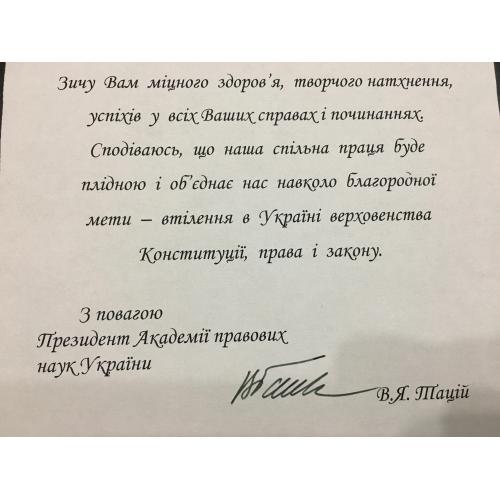 Зичу Вам міцного здоров'я, творчого натхнення,
успіхів у всіх Ваших справах і починаннях.
Сподіваюсь, що наша спільна праця буде
плідною і об'єднає нас навколо благородної
мети – втілення в Україні верховенства
Конституції, права і закону.
З повагою
Президент Академії правових
наук України
В.Я. Тацій